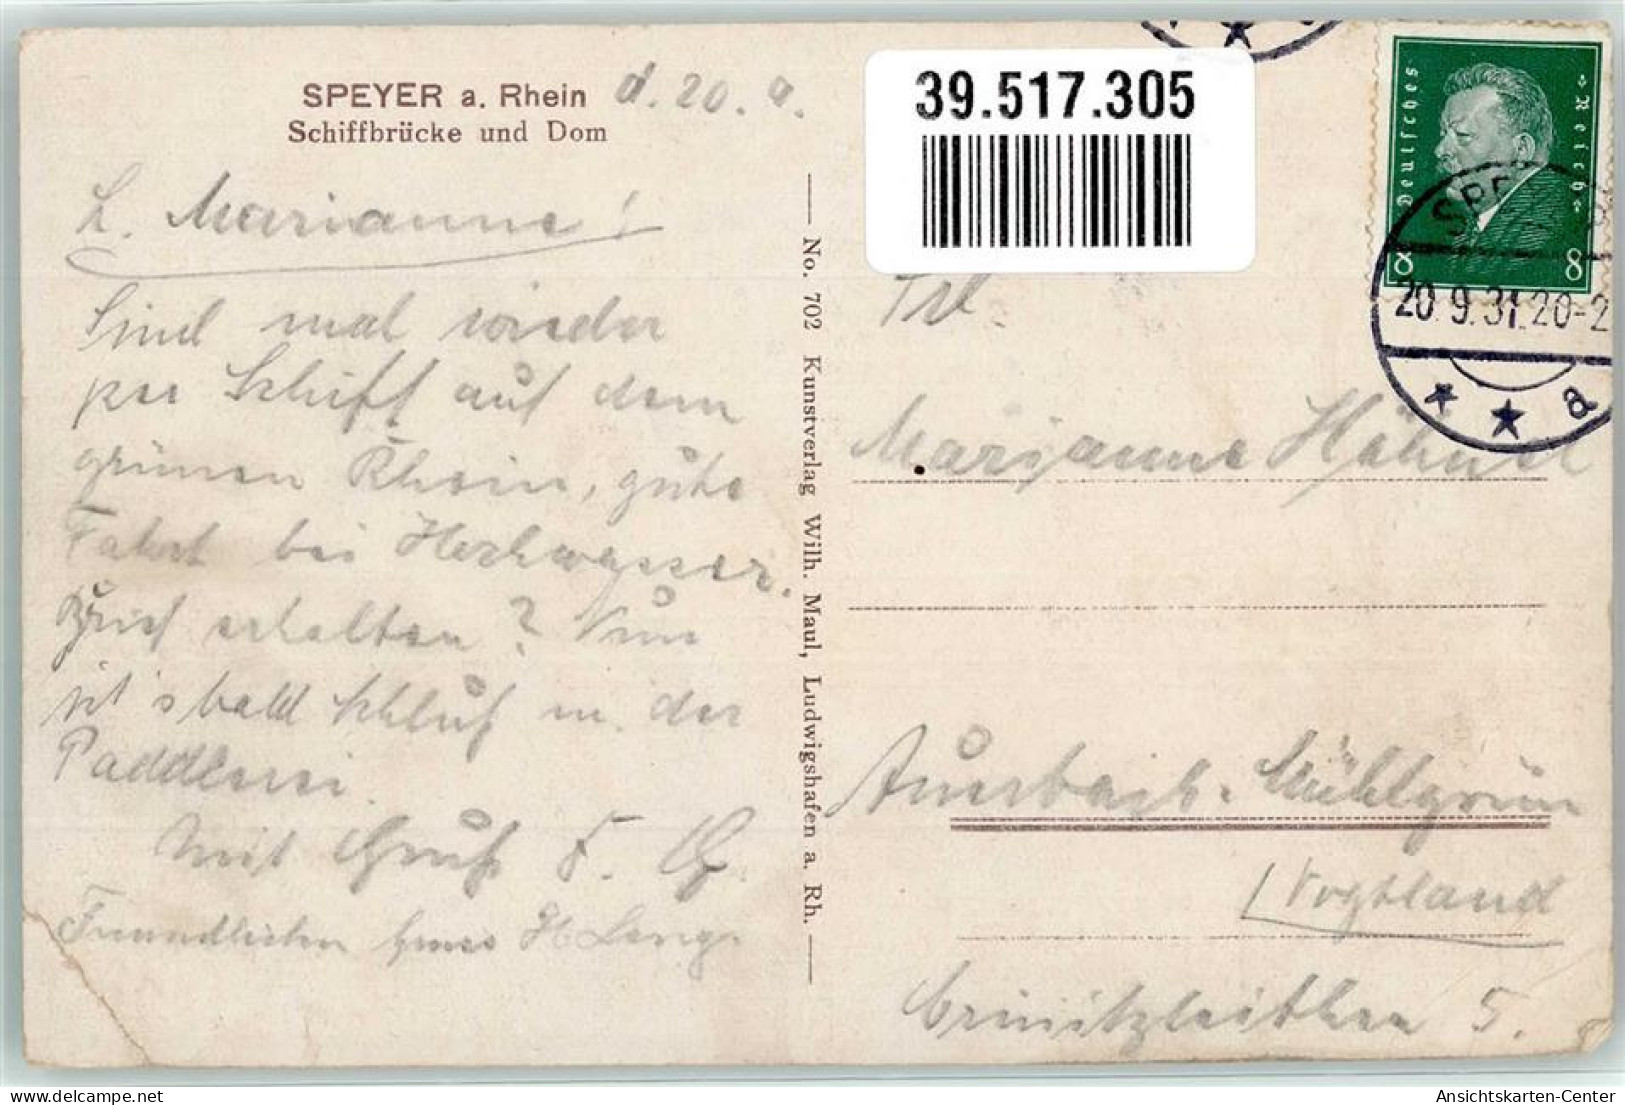 SPEYER a. Rhein d. 20. 9.
Schiffbrücke und Dom
L. Marianne!
Sind mal wieder
per Schiff auf dem
grünen Rhein, gute
Fahrt bei Hochwasser.
Brief erhalten? Nun
ist's bald Schluß m. der
Paddlerei.
Mit Gruß F. G.
Freundlichen Gruss H. Lang.
No. 702 Kunstverlag Wilh. Maul, Ludwigshafen a. Rh.
39.517.305
Deutsches Reich
8 8
SPEYER
20.9.31.20-2
* * a
Frl.
Marianne Hähnel
Auerbach-Mühlgrün
Vogtland
Crinitzleithen 5.
Ansichtskarten-Center
delcampe.net